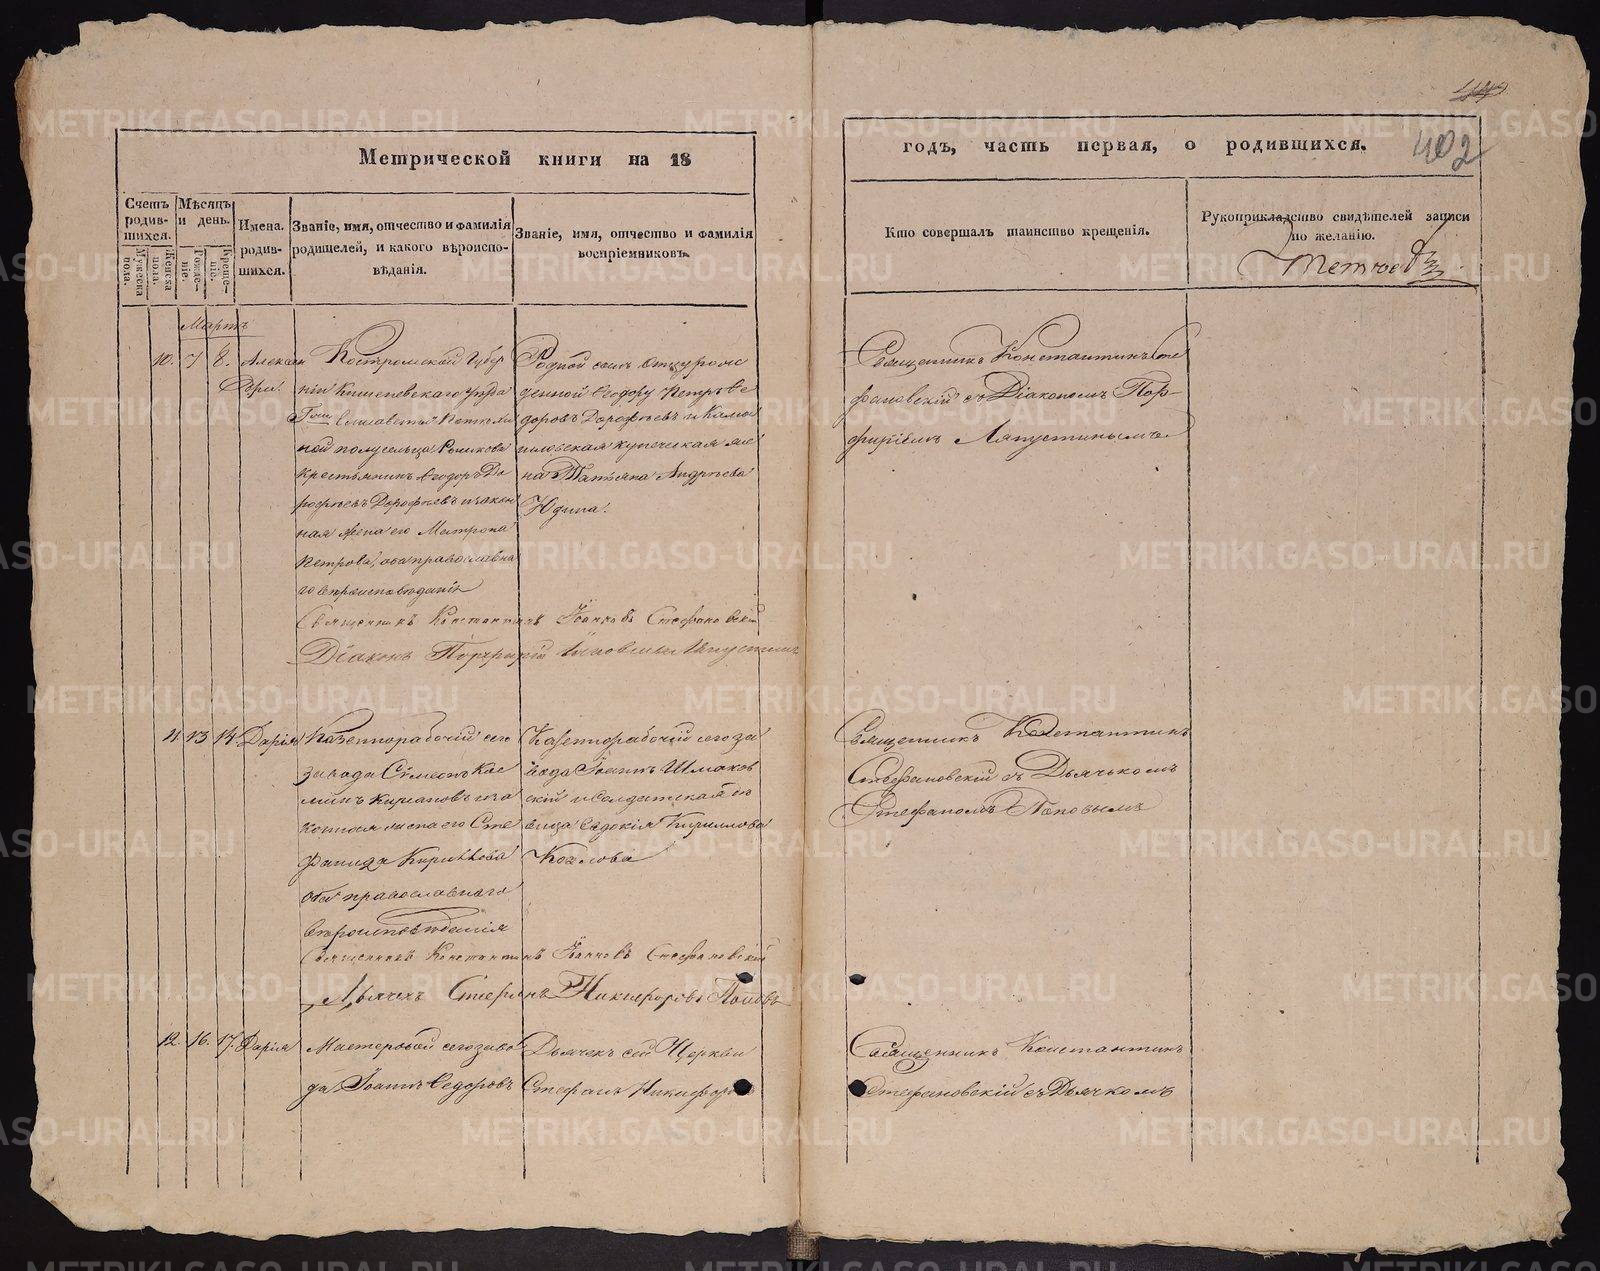 402
Метрической книги на 18
годъ, часть первая, о родившихся.
Счетъ родив-шихся.
Мужеска пола.
Женска пола.
Мѣсяцъ и день.
Рожде-ніе.
Креще-ніе.
Имена родив-шихся.
Званіе, имя, отчество и фамилія
родителей, и какого вѣроиспо-
вѣданія.
Званіе, имя, отчество и фамилія
воспріемниковъ.
Кто совершалъ таинство крещенія.
Рукоприкладство свидѣтелей записи
по желанію.
Мартъ
10. 7 8.
Костромской Губер
ніи
Г-жи Елисаветы
крестьянинъ Ѳеодоръ До
рофѣевъ Дорофѣевъ и закон
ная жена его Матрона
Петрова, оба православна
го вѣроисповѣданія
Родной сынъ
Ѳеодору Петръ Ѳе
доровъ Дорофѣевъ и Камы
шловская купеческая же
на Татьяна Андреева
Юдина.
Священникъ Константинъ Сте
фановскій съ Діакономъ Пор-
фиріемъ Ляпустинымъ
Священникъ Константинъ Іоанновъ Стефановскій
Діаконъ Порфирій Ляпустинъ
11. 13 14. Дарія
Казеннорабочій сего
завода Симеонъ Кос
минъ и за
конная жена его Сте
фанида Кирилова
оба православнаго
вѣроисповѣданія
Казеннорабочій сего за
вода Іоаннъ Шмаков
скій и Солдатская дѣ
вица Евдокія Кириллова
Козлова
Священникъ Константинъ
Стефановскій съ Дьячкомъ
Стефаномъ Поповымъ
Священникъ Константинъ Іоанновъ Стефановскій
Дьячекъ Стефанъ Никифоровъ Поповъ
12. 16. 17. Дарія
Мастеровой сего заво
да Іоаннъ Ѳедоровъ
Дьячек сей Церкви
Стефанъ Никифоровъ
Священникъ Константинъ
Стефановскій съ Дьячкомъ
METRIKI.GASO-URAL.RU